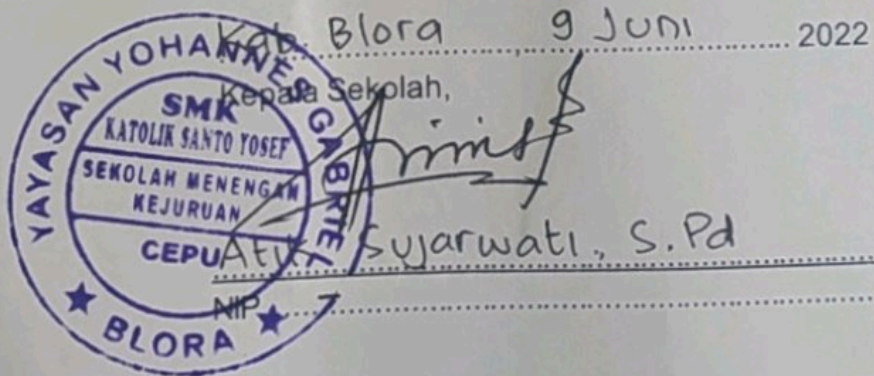 Kab. Blora, 9 Juni 2022
Kepala Sekolah,
YAYASAN YOHANNES GABRIEL
SMK
KATOLIK SANTO YOSEF
SEKOLAH MENENGAH
KEJURUAN
CEPU
★ BLORA ★
Sujarwati., S.Pd
NIP